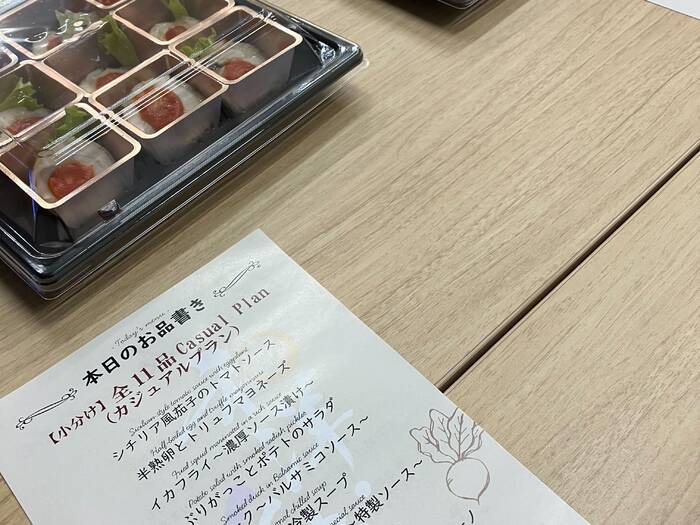 Today's menu
本日のお品書き
【小分け】全11品 Casual Plan
(カジュアルプラン)
Sicilian style tomato sauce with eggplant
シチリア風茄子のトマトソース
Half-boiled egg and truffle mayonnaise
半熟卵とトリュフマヨネーズ
Fried squid marinated in rich sauce
イカフライ~濃厚ソース漬け~
Potato salad with smoked radish pickles
ぶりがっことポテトのサラダ
Smoked duck in Balsamic sauce
ク~バルサミコソース~
chilled soup
冷製スープ
special sauce
~特製ソース~
ノ